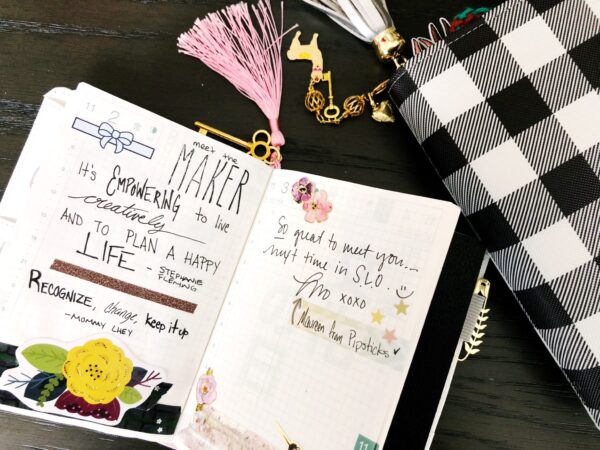 11
2
meet the
MAKER
It's EMPOWERING to live
creatively
AND TO PLAN A HAPPY
LIFE - STEPHANIE
FLEMING
RECOGNIZE, change, keep it up
- MOMMY LHEY
3
So great to meet you...
next time in SLO.
xoxo
Maureen from Pipsticks
11